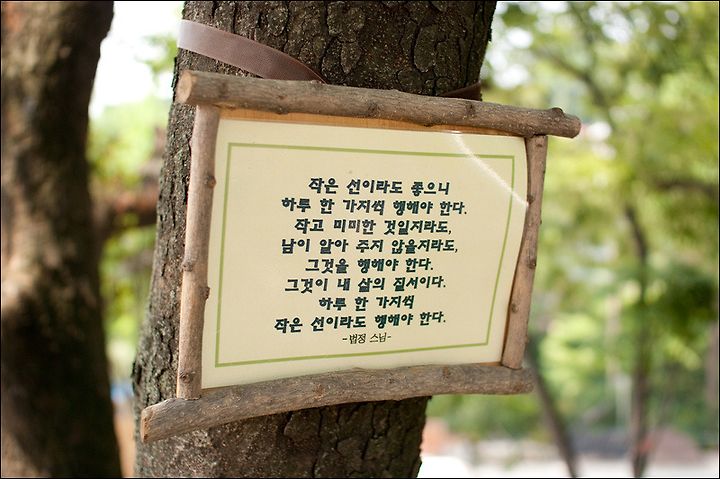 작은 선이라도 좋으니
하루 한 가지씩 행해야 한다.
작고 미미한 것일지라도,
남이 알아 주지 않을지라도,
그것을 행해야 한다.
그것이 내 삶의 질서이다.
하루 한 가지씩
작은 선이라도 행해야 한다.
-법정 스님-